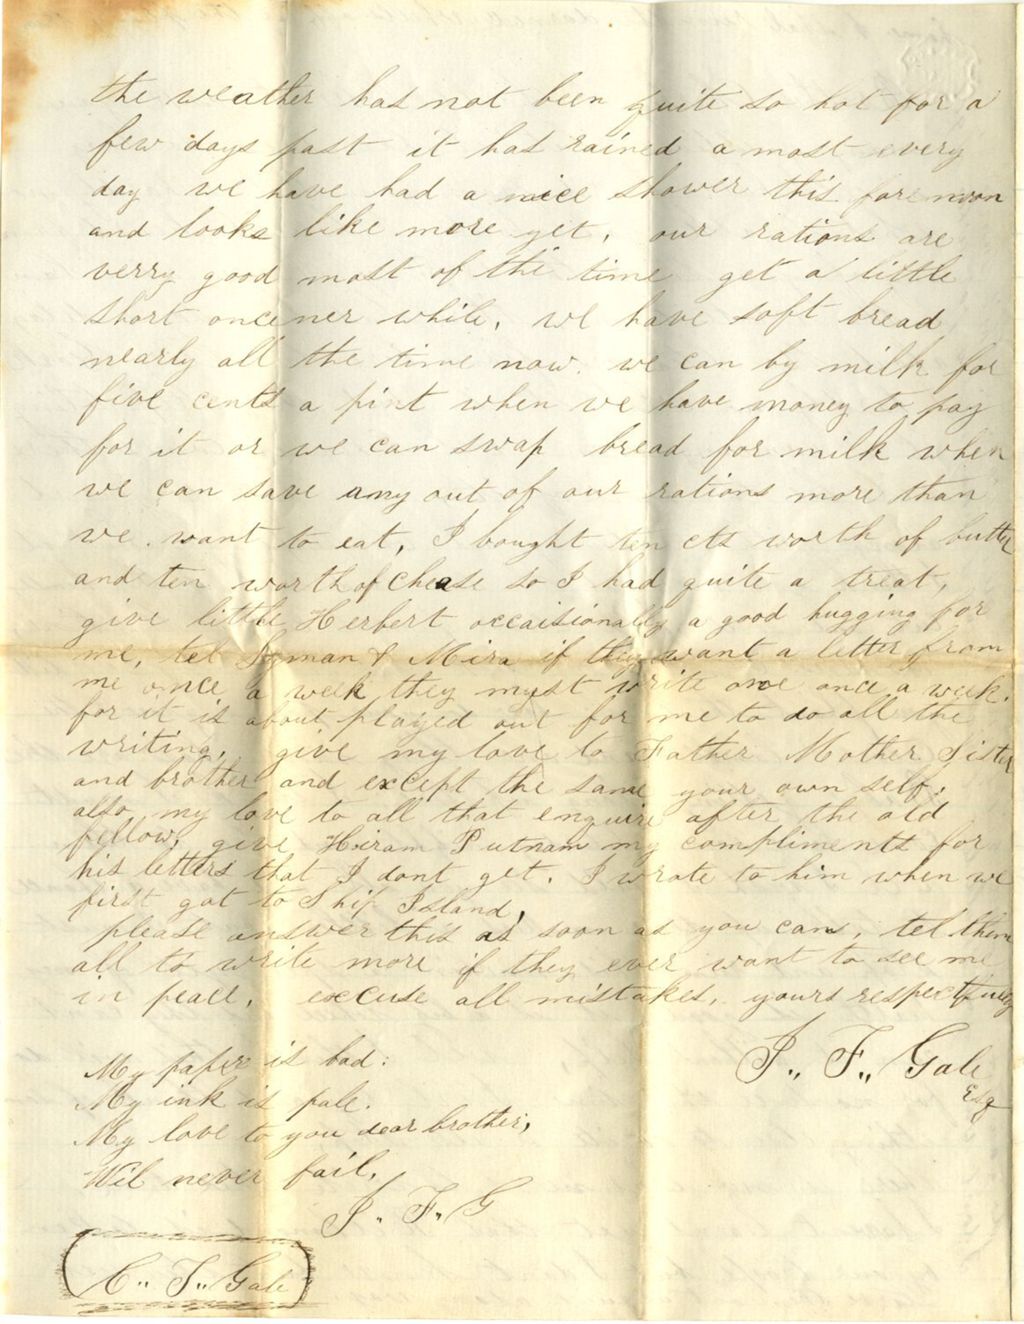 the weather has not been quite so hot for a
few days past it has rained a most every
day we have had a nice shower this forenoon
and looks like more yet, our rations are
verry good most of the time get a little
short once ner while, we have soft bread
nearly all the time now. we can by milk for
five cents a pint when we have money to pay
for it or we can swap bread for milk when
we can save any out of our rations more than
we want to eat, I bought ten cts worth of butter
and ten worth of chease so I had quite a treat,
give little Herbert occaisionally a good hugging for
me, tel Lyman & Mira if they want a letter from
me once a week they must write one once a week.
for it is about played out for me to do all the
writing, give my love to Father Mother Sister
and brother and except the same your own self.
also my love to all that enquire after the old
fellow, give Hiram Putnam my compliments for
his letters that I dont get. I wrote to him when we
first got to Ship Island,
please answer this as soon as you can, tel them
all to write more if they ever want to see me
in peace, excuse all mistakes, yours respectfully
J.. F.. Gale
Esq
My paper is bad:
My ink is pale.
My love to you dear brother,
Wil never fail,
J.. F.. G
C.. T.. Gale